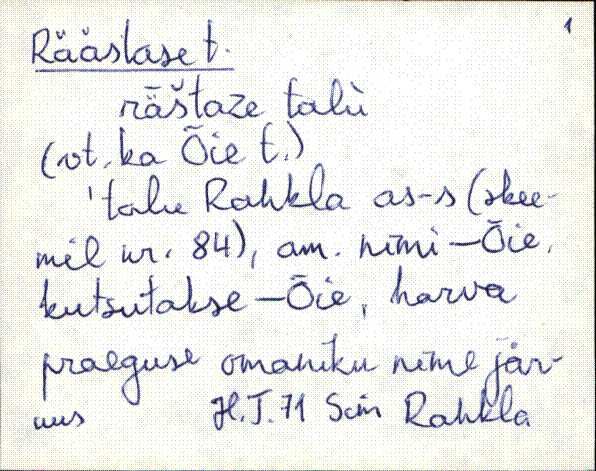 1
Räästase t.
rǟštaᴢe talù
(vt. ka Õie t.)
'talu Rahkla as-s (skee-
mil nr. 84), am. nimi — Õie,
kutsutakse — Õie, harva
praeguse omaniku nime jär-
H.J. 71 Sim Rahkla